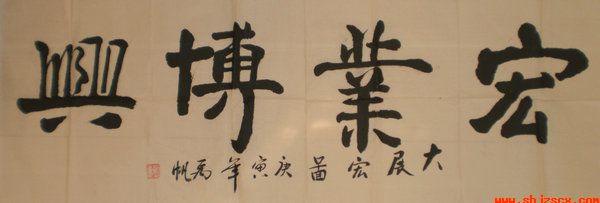 宏業博興
大展宏圖庚寅年禹帆
www.shizscx.com